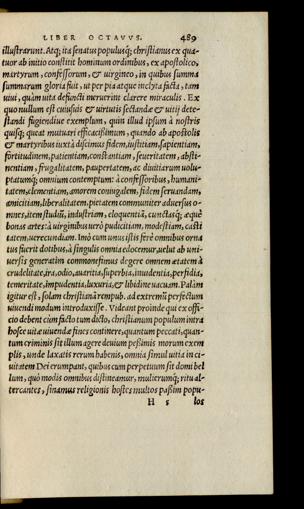 LIBER OCTAVVS. 489
illustrarunt. Atq; ita senatus populusq; christianus ex qua-
tuor ab initio constitit hominum ordinibus, ex apostolico,
martyrum, confessorum, & uirgineo, in quibus summa
summarum gloria fuit, ut per pia atque inclyta facta, tam
uiui, quàm uita defuncti meruerint clarere miraculis. Ex
quo nullum est cuiusuis & uirtutis sectandæ & uitij dete-
standi fugiendiue exemplum, quin illud ipsum à nostris
quisq; queat mutuari efficacissimum, quando ab apostolis
& martyribus iuxtà discimus fidem, iustitiam, sapientiam,
fortitudinem, patientiam, constantiam, seueritatem, absti-
nentiam, frugalitatem, paupertatem, ac diuitiarum uolu-
ptatumq; omnium contemptum: à confessoribus, humani-
tatem, clementiam, amorem coniugalem, fidem seruandam,
amicitiam, liberalitatem, pietatem communiter aduersus o-
mnes, item studiū, industriam, eloquentiā, cunctasq; æquè
bonas artes: à uirginibus uerò pudicitiam, modestiam, casti
tatem, uerecundiam. Imò cum unus istis ferè omnibus orna
tus fuerit dotibus, à singulis omnia edocemur, uelut ab uni-
uersis generatim commonefimus degere omnem ætatem à
crudelitate, ira, odio, auaritia, superbia, inuidentia, perfidia,
temeritate, impudentia, luxuria, & libidine uacuam. Palàm
igitur est, solam christianā rempub. ad extremū perfectum
uiuendi modum introduxisse. Videant proinde qui ex offi-
cio debent cùm facto tum dicto, christianum populum intra
hosce uitæ uiuendæ fines continere, quantum peccati, quan-
tum criminis sit illum agere deuium pessimis morum exem
plis, unde laxatis rerum habenis, omnia simul uitia in ci-
uitatem Dei erumpant, quibus cum perpetuum sit domi bel
lum, quò modis omnibus distineamur, mulierumq; ritu al-
tercantes, sinamus religionis hostes multos passim popu-
H 5 los